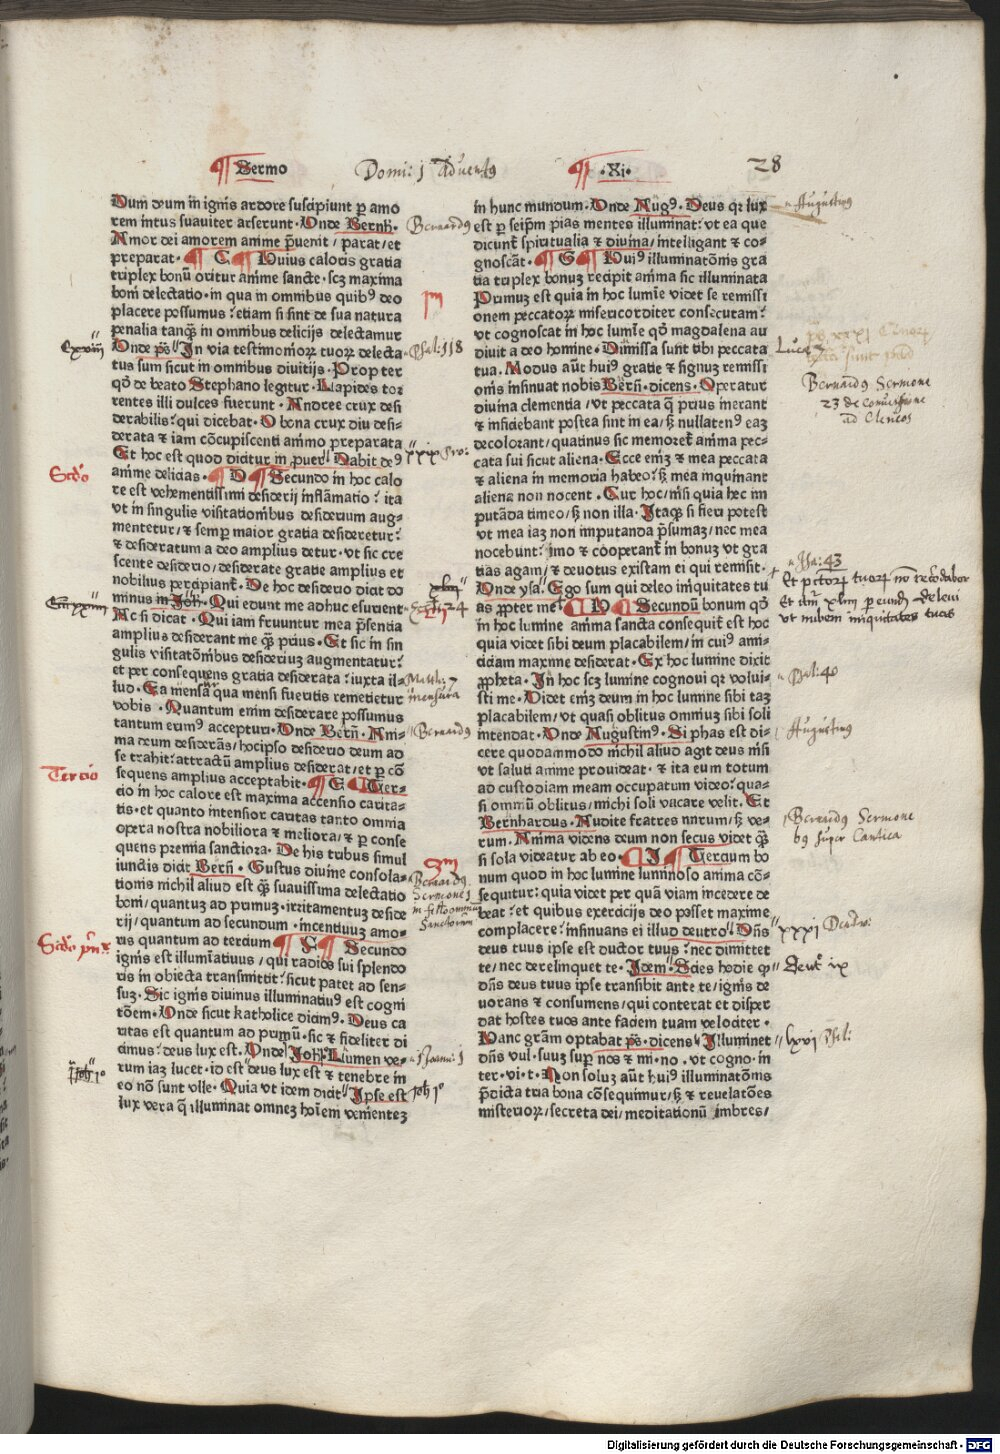 Sermo
Domi: j Aduentꝯ
·Xi·
28
Dum deum in ignis ardore suscipiunt ꝑ amo
rem intus suauiter arserunt. Unde Bernh.
Amor dei amorem anime p̄uenit / parat / et
preparat. C Huius caloris gratia
triplex bonū oritur anime sancte. scꝫ maxima
boni delectatio. in qua in omnibus quibꝯ deo
placere possumus? etiam si sint de sua natura
penalia tanꝙ̄ in omnibus delicijs delectamur
Unde ps̄. In via testimoniorꝝ tuorꝝ delecta
tus sum sicut in omnibus diuitijs. Propter
qō de beato Stephano legitur. Lapides tor
rentes illi dulces fuerunt. Andree crux desi
derabilis? qui dicebat. O bona crux diu desi-
derata & iam cōcupiscenti animo preparata
Et hoc est quod dicitur in ꝓuer. Dabit deꝯ
anime delicias. D Secundo in hoc calo
re est vehementissimi desiderij inflāmatio? ita
vt in singulis visitationibus desiderium aug-
mentetur / & semꝑ maior gratia desideretur?
& desideratum a deo amplius detur. vt sic cre
scente desiderio / desiderate gratie amplius et
nobilius percipiant̄. De hoc desiderio dicit do
minus in Joh. Qui edunt me adhuc esurient
Ac si dicat. Qui iam fruuntur mea p̄sentia
amplius desiderant me ꝙ̄ prius. Et sic in sin
gulis visitatōnibus desiderium augmentatur?
et per consequens gratia desiderata? iuxta il-
lud. Ea mensura qua mensi fueritis remetietur
vobis. Quantum enim desiderare possumus
tantum erimꝯ accepturi. Unde Bern̄. Ani-
ma deum desiderās / hocipso desiderio deum ad
se trahit? attractū amplius desiderat / et ꝑ cō
sequens amplius acceptabit. E Ter-
cio in hoc calore est maxima accensio carita-
tis. et quanto intensior caritas tanto omnia
opera nostra nobiliora & meliora / & ꝑ conse
quens premia sanctiora. De his tribus simul
iunctis dicit Bern̄. Gustus diuine consola-
tionis nichil aliud est ꝙ̄ suauissima delectatio
boni / quantuꝫ ad primuꝫ. irritamentuꝫ deside
rij / quantum ad secundum. incentiuuꝫ amo-
ris quantum ad tercium F Secundo
ignis est illumīatiuus / qui radios sui splendo
ris in obiecta transmittit? sicut patet ad sen-
suꝫ. Sic ignis diuinus illuminatiuꝯ est cogni
tōem. Unde sicut katholice dicimꝯ. Deus ca
ritas est quantum ad primū. sic & fideliter di
cimus? deus lux est. Unde Joh. Lumen ve-
rum iaꝫ lucet. id est deus lux est & tenebre in
eo nō sunt vlle. Quia vt idem dicit Ipse est
lux vera q̄ illuminat omneꝫ hoīem venienteꝫ
in hunc mundum. Unde Augꝯ. Deus qꝛ lux
est ꝑ seip̄m pias mentes illuminat? vt ea que
dicunt̄ spiritualia & diuina / intelligant & co-
gnoscāt. G Huiꝯ illuminatōnis gra
tia triplex bonuꝫ recipit anima sic illuminata
Primuꝫ est quia in hoc lumīe videt se remissi
onem peccatorꝝ misericorditer consecutam?
vt cognoscat in hoc lumīe qō magdalena au
diuit a deo homine. Dimissa sunt tibi peccata
tua. Modus aūt huiꝯ gratie & signuꝫ remissi
onis insinuat nobis Bern̄. dicens. Operatur
diuina clementia / vt peccata q̄ prius inerant
& inficiebant postea sint in ea / sꝫ nullateñꝯ eaꝫ
decolorant / quatinus sic memoret̄ anima pec-
cata sui sicut aliena. Ecce enīꝫ & mea peccata
& aliena in memoria habeo? sꝫ mea inquinant
aliena non nocent. Cur hoc / nisi quia hec im
putāda timeo / sꝫ non illa. Itaqꝫ si fieri potest
vt mea iaꝫ non imputanda p̄sumaꝫ / nec mea
nocebunt? imo & cooperant̄ in bonuꝫ vt gra
tias agam / & deuotus existam ei qui remisit.
Unde ysa. Ego sum qui deleo iniquitates tu
as ꝓpter me H Secundū bonum qō
in hoc lumine anima sancta consequit̄ est hoc
quia videt sibi deum placabilem / in cuiꝯ ami-
ciciam maxime desiderat. Ex hoc lumine dixit
ꝓpheta. In hoc scꝫ lumine cognoui qꝛ volui-
sti me. Videt enīꝫ deum in hoc lumine sibi taꝫ
placabilem / vt quasi oblitus omniuꝫ sibi soli
intendat. Unde Augustinꝯ. Si phas est di-
cere quodammodo nichil aliud agit deus nisi
vt saluti anime prouideat. & ita eum totum
ad custodiam meam occupatum video? qua-
si omniū oblitus / michi soli vacare velit. Et
Bernhardus. Audite fratres nrrum / sꝫ ve-
rum. Anima videns deum non secus videt ꝙ̄
si sola videatur ab eo. I Tercium bo
num quod in hoc lumine luminoso anima cō-
sequitur: quia videt per quā viam incedere de
beat? et quibus exercicijs deo posset maxime
complacere? insinuans ei illud deutro. Dn̄s
deus tuus ipse est ductor tuus? nec dimittet
te / nec derelinquet te. Idem. Scies hodie ꝙ
dn̄s deus tuus ipse transibit ante te / ignis de
uorans & consumens / qui conterat et disper
dat hostes tuos ante faciem tuam velociter.
Hanc gr̄am optabat ps̄. dicens. Illuminet
dn̄s vul. suuꝫ suꝑ nos & mi. no. vt cogno. in
ter. vi. t. Non soluꝫ aūt huiꝯ illuminatōnis
p̄dicta tria bona cōsequimur / sꝫ & reuelatōes
misteriorꝝ / secreta dei / meditationū imbres /
Bernardꝯ
Psal: 118
Secdo
Matth: 7
mensura
Bernardꝯ
Tercio
Bernardꝯ
Sermone j
in festo omnium
Sanctorum
Joann: 1
Joh 1º
Augustinꝯ
Luce 7
Bernardꝯ Sermone
23 de Conuersione
ad Clericos
Isa: 43
Et peccatorꝝ tuorꝝ nō recordabor
vt nubem iniquitates tuas
Psal: 40
Augustinꝯ
Bernardꝯ Sermone
69 super Cantica
xxxi Deutro:
Deut ix
lxvi Psal:
Digitalisierung gefördert durch die Deutsche Forschungsgemeinschaft - DFG